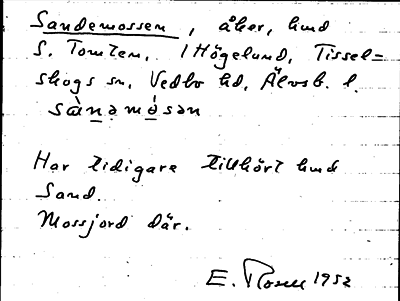 Sandemossen, åker, hmd
S. Tomten, 1 Högelund, Tissel=
skogs sn, Vedbo hd, Älvsb. l.
sànəmósən
Har tidigare tillhört hmd
Sand.
Mossjord där.
E. Rosell 1952